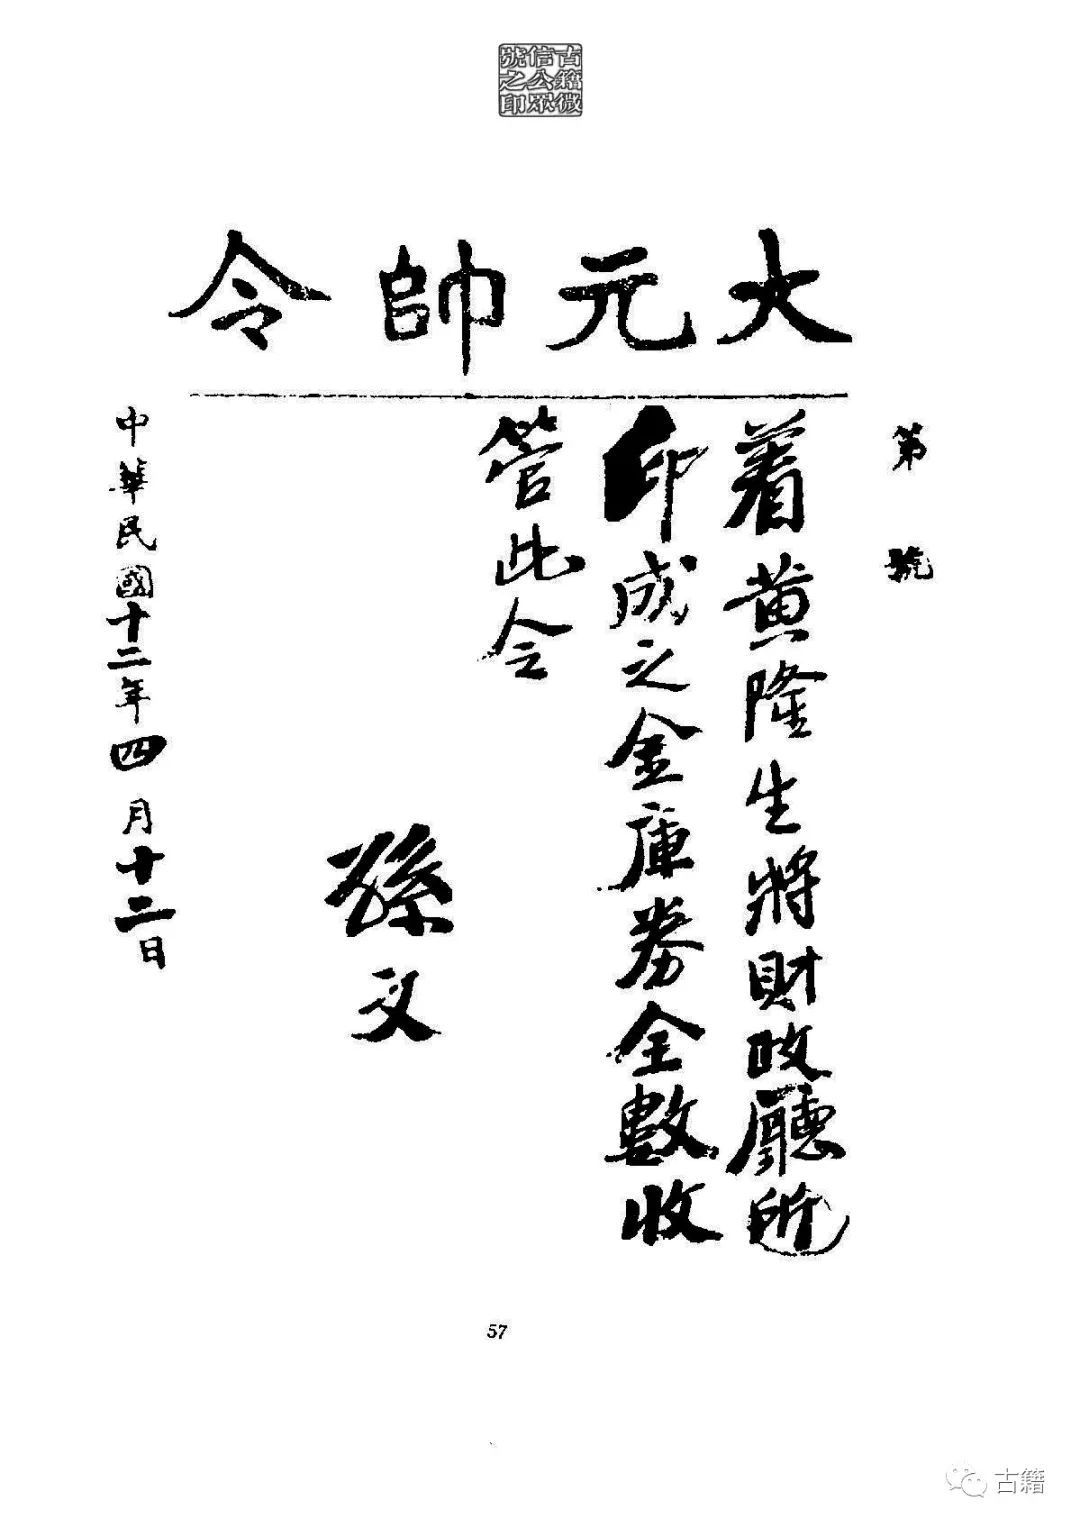 古籍微
信公眾
號之印
大元帥令
第 號
着黄隆生將財政廳所
印成之金庫券全數收
管此令
孫文
中華民國十二年四月十二日
57
古籍